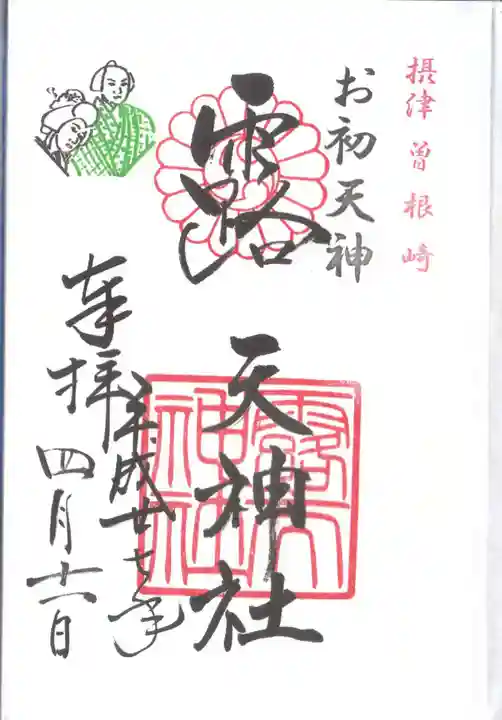 摂津 曽根崎
お初天神
露 天神社
露天神社
平成廿七年
奉拝 四月十六日